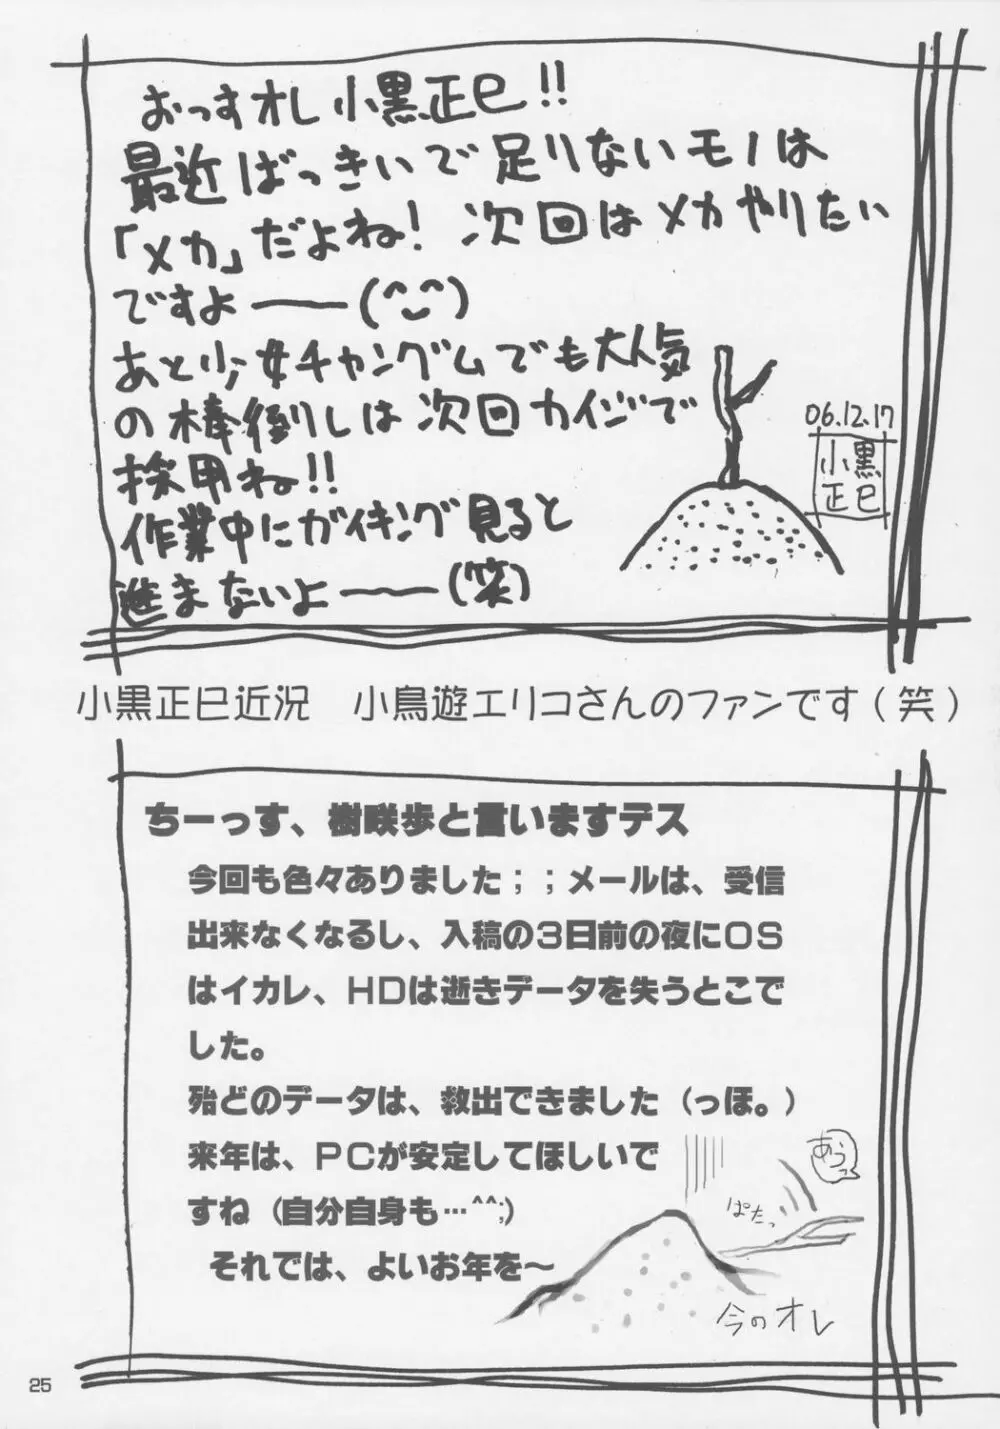 おっすオレ小黒正巳!!
最近ばっきいで足りないモノは
「メカ」だよね! 次回はメカやりたい
ですよ――(^‿^)
あと少女チャングムでも大人気
の棒倒しは次回カイジで
採用ね!!
作業中にガイキング見ると
進まないよ――(笑)
06.12.17
小黒
正巳
小黒正巳近況　小鳥遊エリコさんのファンです(笑)
ちーっす、樹咲歩と言いますデス
今回も色々ありました;;メールは、受信
出来なくなるし、入稿の3日前の夜にOS
はイカレ、HDは逝きデータを失うとこで
した。
殆どのデータは、救出できました(っほ。)
来年は、PCが安定してほしいで
すね(自分自身も…^^;)
それでは、よいお年を〜
あうっ
ぱたっ
今のオレ
25